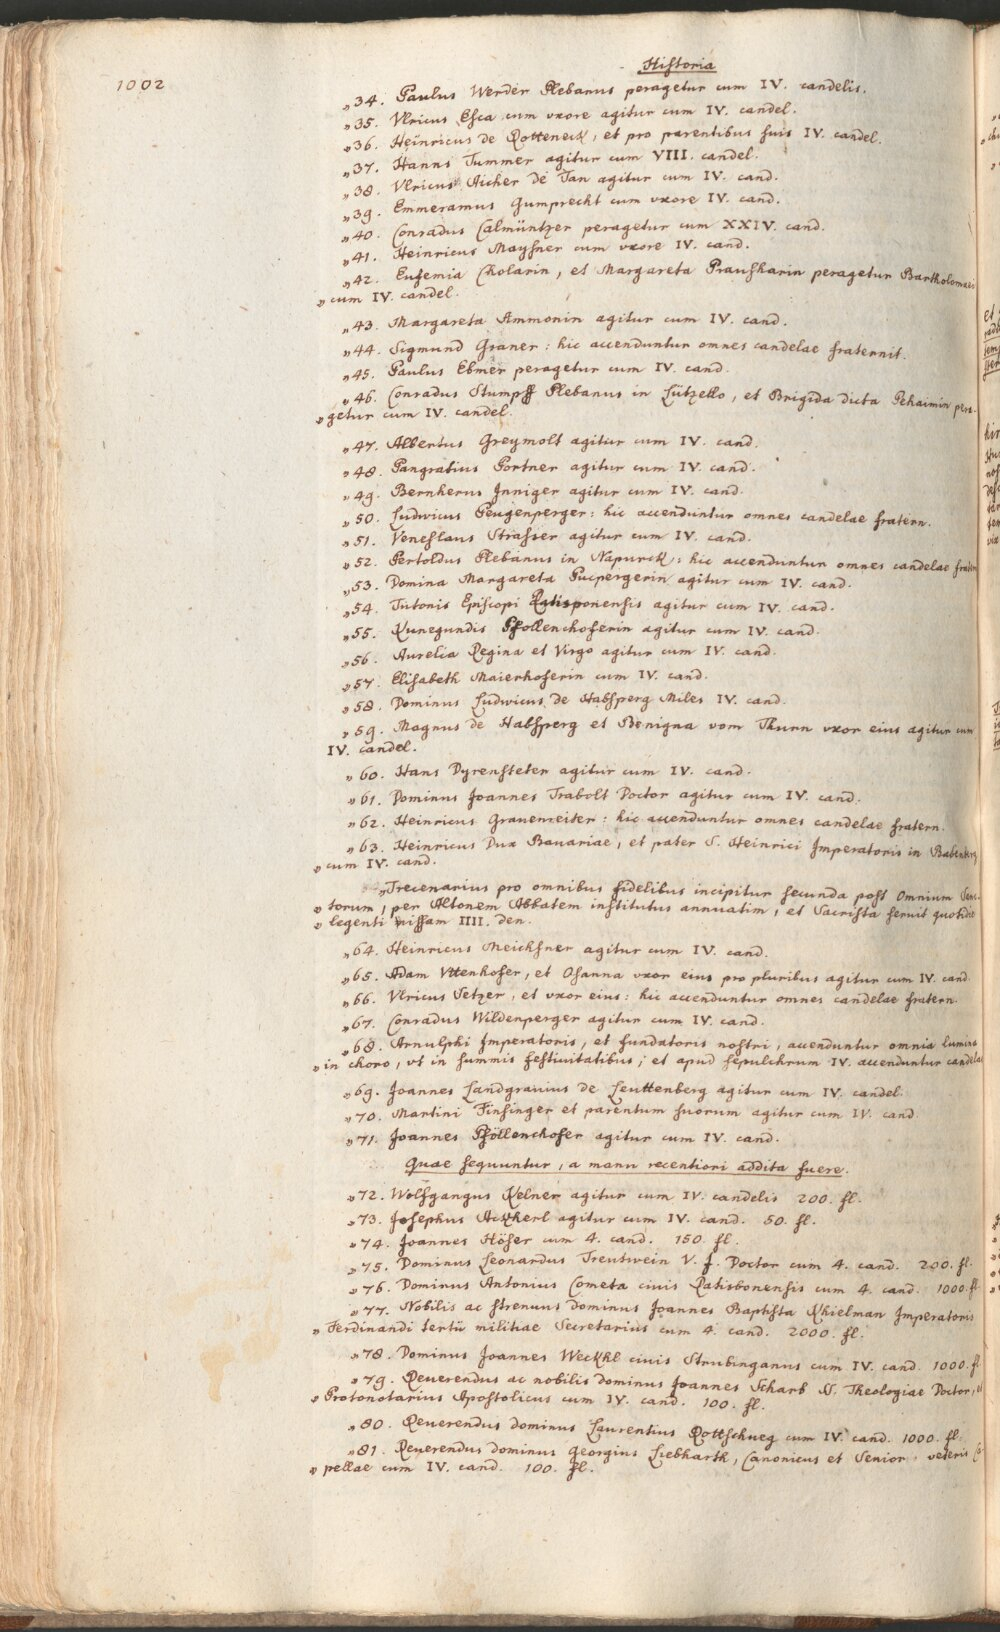 1002
Historia
„34. Paulus Werder Plebanus peragetur cum IV. candelis.
„35. Vlricus Esca cum vxore agitur cum IV. candel.
„36. Heinricus de Rotteneck, et pro parentibus suis IV. candel.
„37. Hanns Tummer agitur cum VIII. candel.
„38. Vlricus Aicher de Tan agitur cum IV. cand.
„39. Emmeramus Gumprecht cum vxore IV. cand.
„40. Conradus Calmüntzer peragetur cum XXIV. cand.
„41. Heinricus Maysner cum vxore IV. cand.
„42. Eufemia Cholarin, et Margareta Prausharin peragetur Bartholomaei
„cum IV. candel.
„43. Margareta Ammonin agitur cum IV. cand.
„44. Sigmund Graner: hic accenduntur omnes candelae fraternit.
„45. Paulus Ebmer peragetur cum IV. cand.
„46. Conradus Stumpff Plebanus in Lützello, et Brigida dicta Pehaimin pera-
„getur cum IV. candel.
„47. Albertus Greymolt agitur cum IV. cand.
„48. Pangratius Portner agitur cum IV. cand.
„49. Bernherus Inniger agitur cum IV. cand.
„50. Ludwicus Peugenperger: hic accenduntur omnes candelae fratern.
„51. Veneslaus Strasser agitur cum IV. cand.
„52. Pertoldus Plebanus in Napurck: hic accenduntur omnes candelae fratern
„53. Domina Margareta Pucpergerin agitur cum IV. cand.
„54. Tutonis Episcopi Ratisponensis agitur cum IV. cand.
„55. Kunegundis Pfollenchoferin agitur cum IV. cand.
„56. Aurelia Regina et Virgo agitur cum IV. cand.
„57. Elisabeth Maierhoferin cum IV. cand.
„58. Dominus Ludwicus de Habsperg Miles IV. cand.
„59. Magnus de Habsperg et Benigna vom Thurn vxor eius agitur cum
IV. candel.
„60. Hans Dyrensteter agitur cum IV. cand.
„61. Dominus Joannes Trabolt Doctor agitur cum IV. cand.
„62. Heinricus Grauenreiter: hic accenduntur omnes candelae fratern.
„63. Heinricus Dux Bauariae, et pater S. Heinrici Imperatoris in Babenberg
„cum IV. cand.
„Trecenarius pro omnibus fidelibus incipitur secunda post Omnium Sanc-
„torum, per Altonem Abbatem institutus annuatim, et Sacrista seruit quotidie
„legenti missam IIII. den.
„64. Heinricus Meichsner agitur cum IV. cand.
„65. Adam Vttenhofer, et Osanna vxor eius pro pluribus agitur cum IV. cand.
„66. Vlricus Setzer, et vxor eius: hic accenduntur omnes candelae fratern.
„67. Conradus Wildenperger agitur cum IV. cand.
„68. Arnulphi Imperatoris, et fundatoris nostri, accenduntur omnia lumina
„in choro, vt in summis festiuitatibus; et apud sepulchrum IV. accenduntur candelae
„69. Joannes Landgrauius de Leuttenberg agitur cum IV. candel.
„70. Martini Finsinger et parentum suorum agitur cum IV. cand.
„71. Joannes Pföllenchofer agitur cum IV. cand.
Quae sequuntur, a manu recentiori addita fuere.
„72. Wolfgangus Kelner agitur cum IV. candelis 200. fl.
„73. Josephus Ackherl agitur cum IV. cand. 50. fl.
„74. Joannes Höfer cum 4. cand. 150. fl.
„75. Dominus Leonardus Treutwein V. J. Doctor cum 4. cand. 200. fl.
„76. Dominus Antonius Cometa ciuis Ratisbonensis cum 4. cand. 1000. fl
„77. Nobilis ac strenuus dominus Joannes Baptista Khielman Imperatoris
„Ferdinandi tertii militiae Secretarius cum 4. cand. 2000. fl.
„78. Dominus Joannes Weckhl ciuis Strubinganus cum IV. cand. 1000. fl
„79. Reuerendus ac nobilis dominus Joannes Scharb S. Theologiae Doctor, et
„Protonotarius Apostolicus cum IV. cand. 100. fl.
„80. Reuerendus dominus Laurentius Rottschueg cum IV. cand. 1000. fl.
„81. Reuerendus dominus Georgius Liebharth, Canonicus et Senior veteris Ca-
„pellae cum IV. cand. 100. fl.